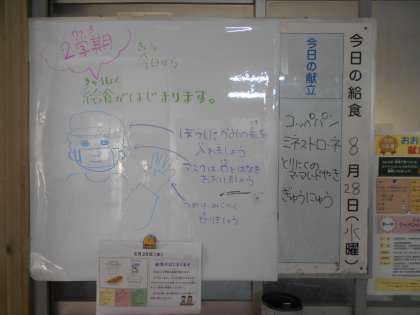 2学期
がっき
きょう
今日から
きゅうしょく
給食がはじまります。
ぼうしにかみの毛を
入れましょう
マスクは口とはなを
おおいましょう
つめはみじかく
きりましょう
今日の給食
8月28日(水曜)
今日の献立
コッペパン
ミネストローネ
とりにくの
マーマレードやき
ぎゅうにゅう
8月28日(水)